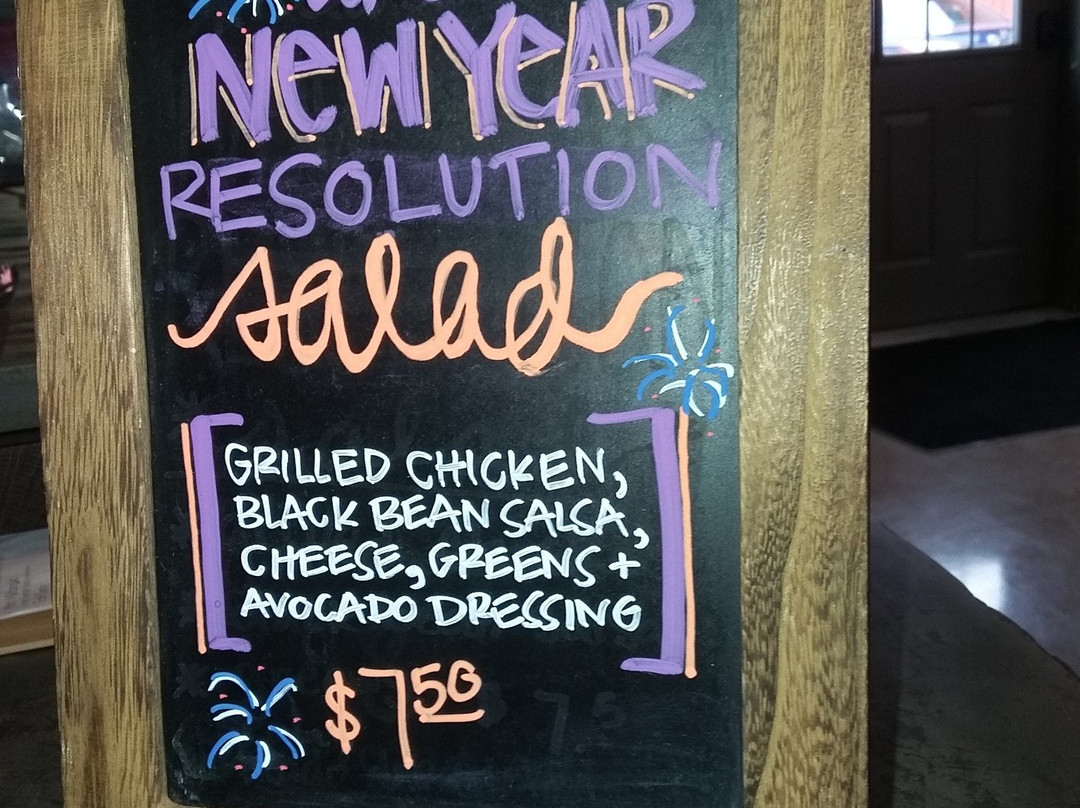 NEW YEAR
RESOLUTION
salad
GRILLED CHICKEN,
BLACK BEAN SALSA,
CHEESE, GREENS +
AVOCADO DRESSING
$7 50